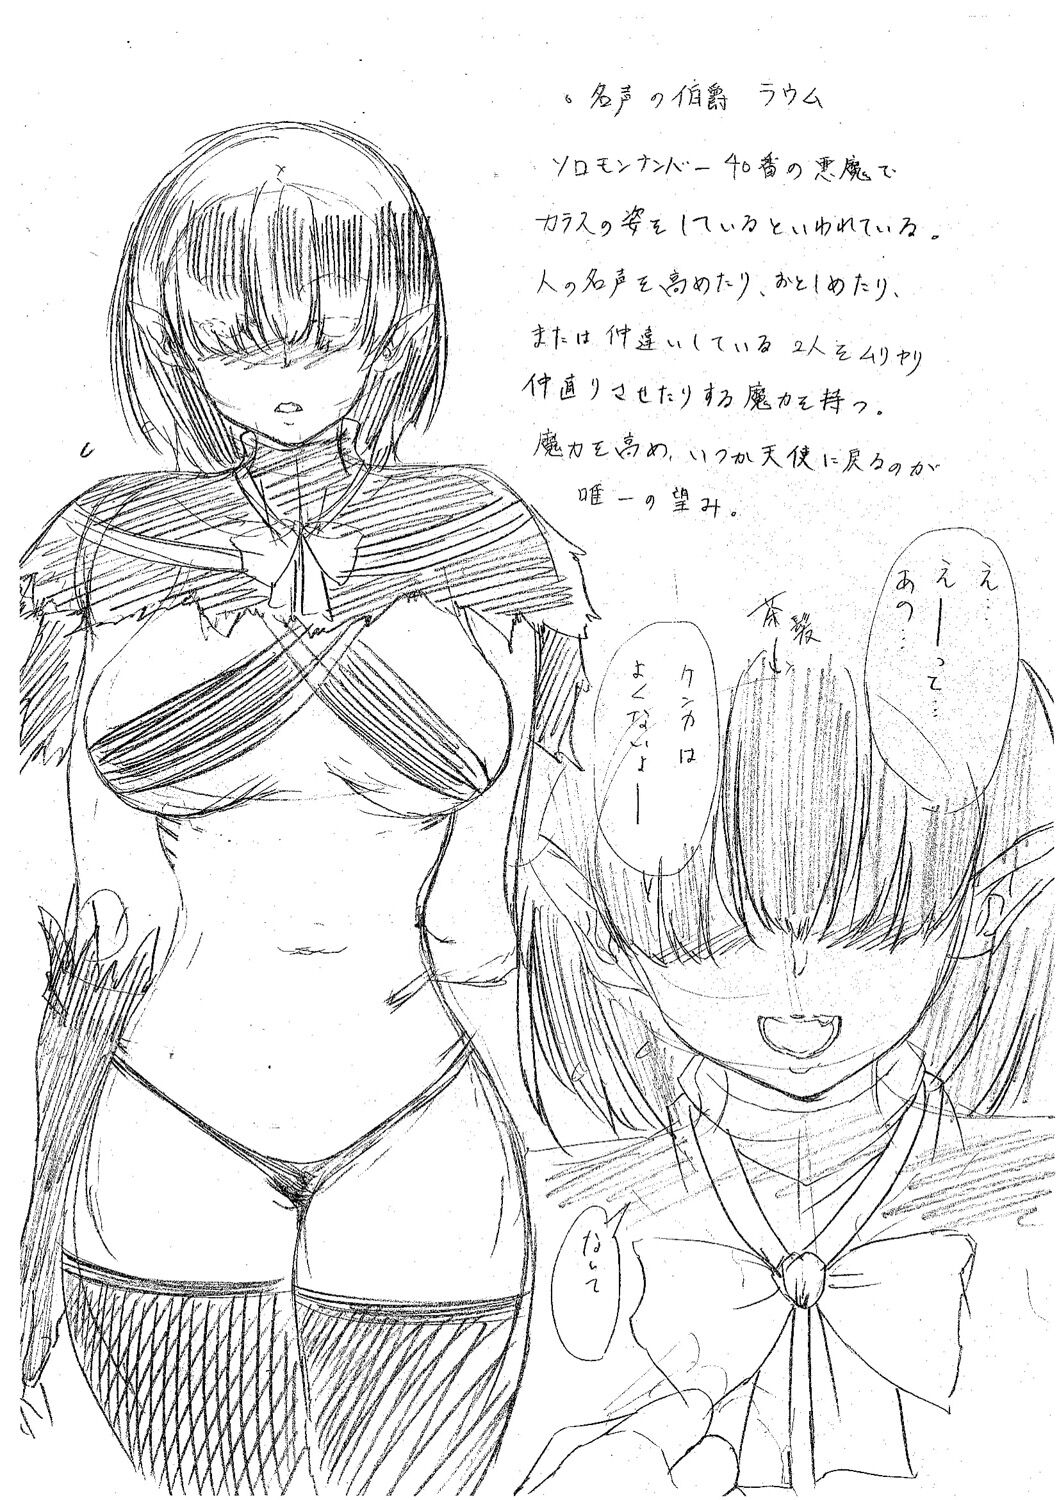 。名声の伯爵 ラウム
ソロモンナンバー40番の悪魔で
カラスの姿をしているといわれている。
人の名声を高めたり、おとしめたり、
または仲違いしている2人をムリヤリ
仲直りさせたりする魔力を持つ。
魔力を高め、いつか天使に戻るのが
唯一の望み。
え…
えーって…
あの…
茶髪
ケンカは
よくないよー
なんて